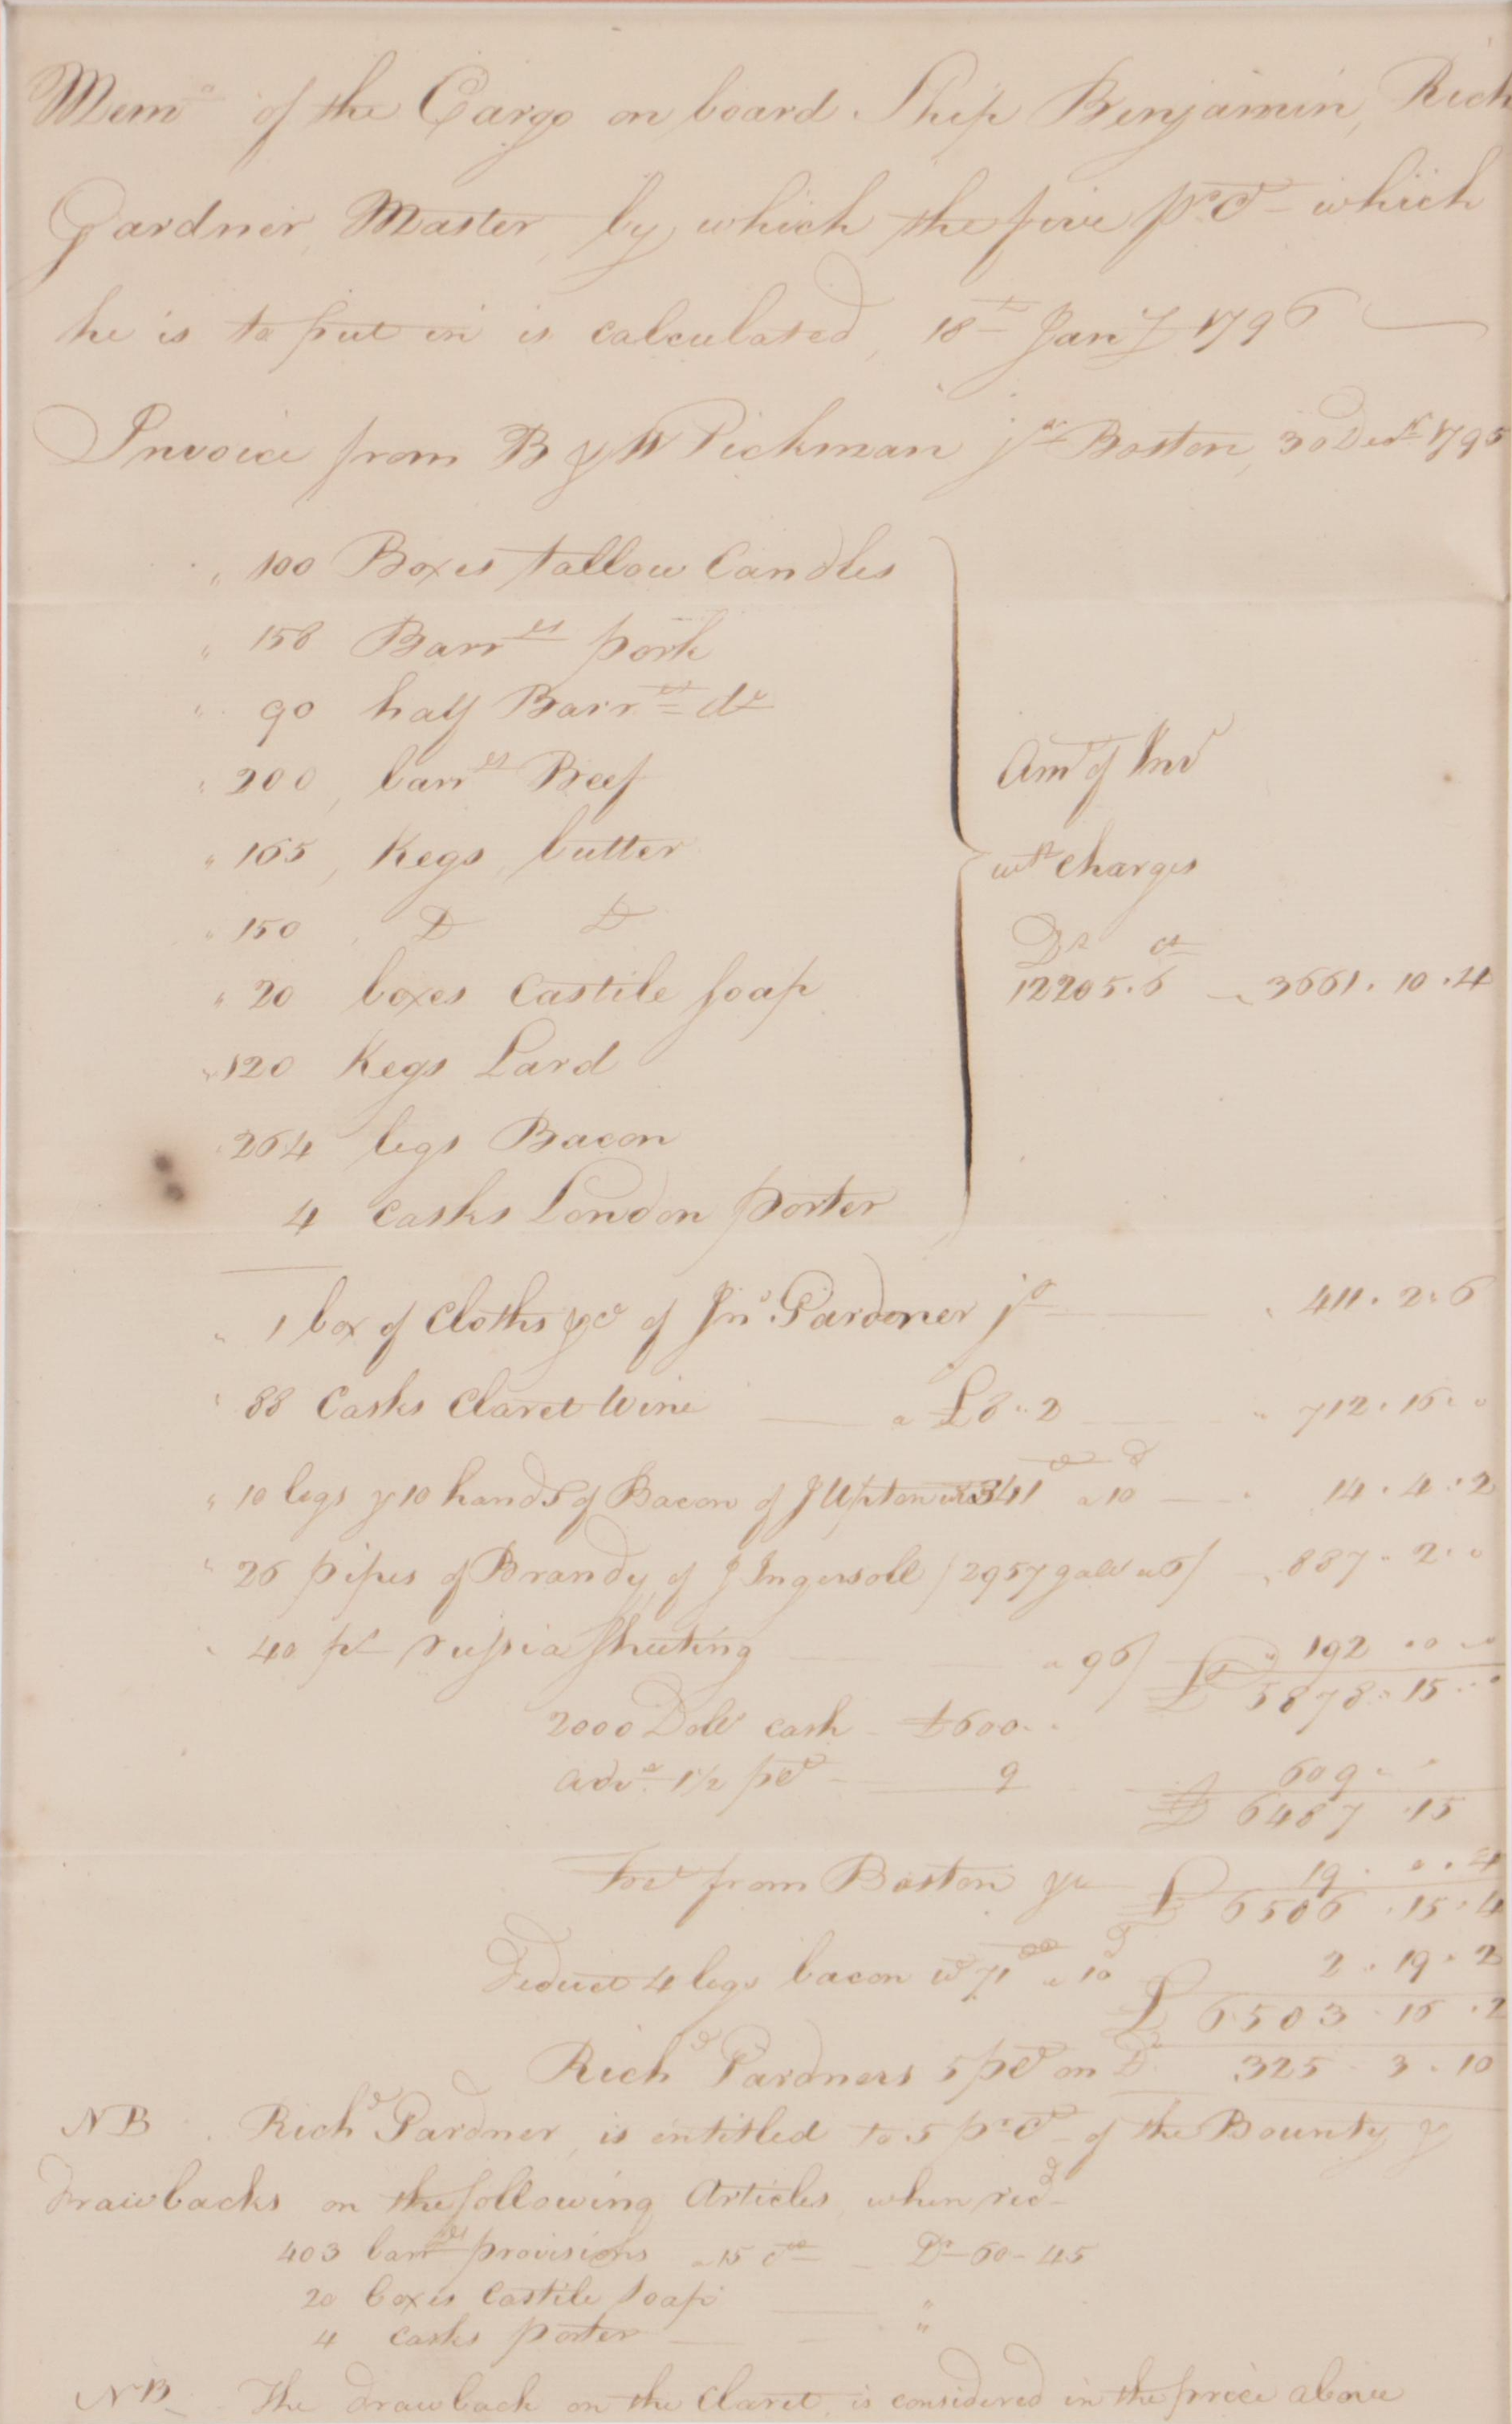 Memo of the Cargo on board Ship Benjamin, Rich
Gardner, Master, by which the five pr Ct which
he is to put in is calculated, 18th Jany 1796
Invoice from B & W Pickman jr Boston, 30 Decr 1795
" 100 Boxes tallow Candles
" 158 Barrels pork
" 90 half Barrels do
" 200, barrels Beef
" 165, Kegs, butter
" 150, Do Do
" 20 boxes Castile soap
" 120 Kegs Lard
" 264 legs Bacon
4 Casks London porter
Amt of Invo
wth Charges
Ds cts
12205.6 — 3661.10.4
" 1 box of Cloths &c of Jno Gardner jr — 411.2.6
" 88 Casks Claret Wine — a £8.2 — 712.16.0
" 10 legs & 10 hands of Bacon of J Upton wt 341 a 10d — 14.4.2
" 26 pipes of Brandy, of J Ingersoll / 2957 galls a 6/ — 887.2.0
" 40 ps russia sheeting — a 96/ — 192.0.0
£ 5878.15.0
2000 Dolls cash — £600..
advce 1½ pCt — 9 — 609..
£ 6487.15
from Boston &c 19.0.4
£ 6506.15.4
Deduct 4 legs bacon wt 71 a 10d 2.19.2
£ 6503.16.2
Richd Gardners 5 pCt on Do 325.3.10
NB. Richd Gardner, is entitled to 5 pr Ct of the Bounty &
drawbacks on the following Articles, when recd
403 barrels provisions a 15 cts — Ds 60-45
20 boxes Castile soap — "
4 casks porter — "
NB. The drawback on the Claret, is considered in the price above